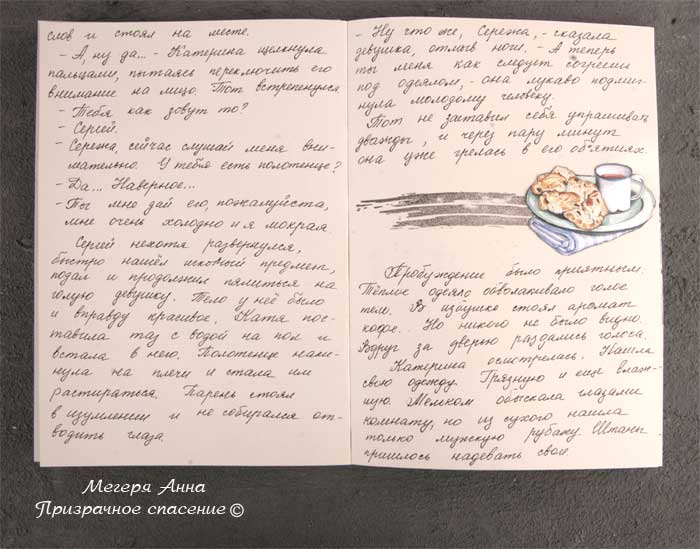 слов и стоял на месте.
- А, ну да... - Катерина щёлкнула
пальцами, пытаясь переключить его
внимание на лицо. Тот встрепенулся
- Тебя как зовут то?
- Сергей.
- Сережа, сейчас слушай меня вни-
мательно. У тебя есть полотенце?
- Да... Наверное...
- Ты мне дай его, пожалуйста,
мне очень холодно и я мокрая
Сергей нехотя развернулся,
быстро нашёл искомый предмет,
подал и продолжил пялиться на
голую девушку. Тело у неё было
и вправду красивое. Катя пос-
тавила таз с водой на пол и
встала в него. Полотенце наки-
нула на плечи и стала им
растираться. Парень стоял
в изумлении и не собирался от-
водить глаза.
- Ну что же, Сережа, - сказала
девушка, отмыв ноги. - А теперь
ты меня как следует согреешь
под одеялом, - она лукаво подмиг-
нула молодому человеку.
Тот не заставил себя упрашивать
дважды, и через пару минут
она уже грелась в его объятиях.
Пробуждение было приятным.
Тёплое одеяло обволакивало голое
тело. В избушке стоял аромат
кофе... Но никого не было видно.
Вдруг за дверью раздались голоса.
Катерина осмотрелась. Нашла
свою одежду. Грязную и еще влаж-
ную. Мельком обыскала глазами
комнату, но из сухого нашла
только мужскую рубаху. Штаны
пришлось надевать свои
Мегеря Анна
Призрачное спасение ©